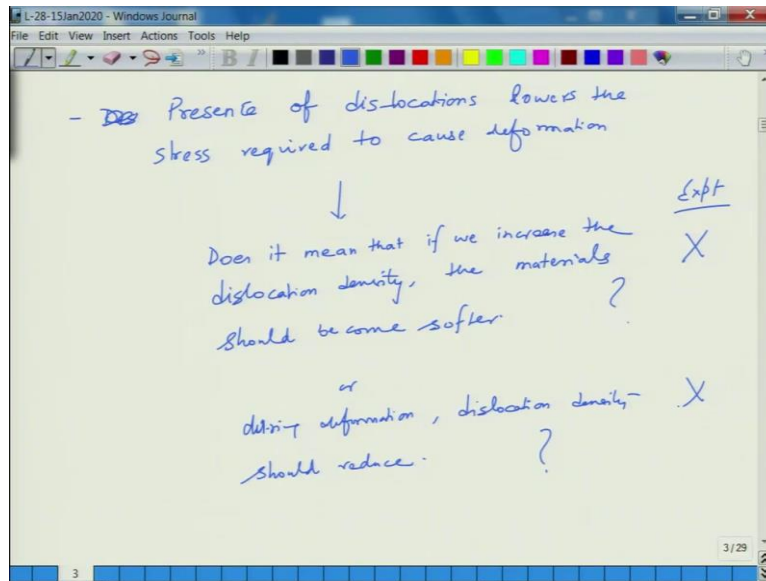 L-28-15Jan2020 - Windows Journal
File Edit View Insert Actions Tools Help
B I
- Presence of dislocations lowers the
stress required to cause deformation
↓
Expt
Does it mean that if we increase the X
dislocation density, the materials
should become softer. ?
or
during deformation, dislocation density X
should reduce. ?
3/29
3